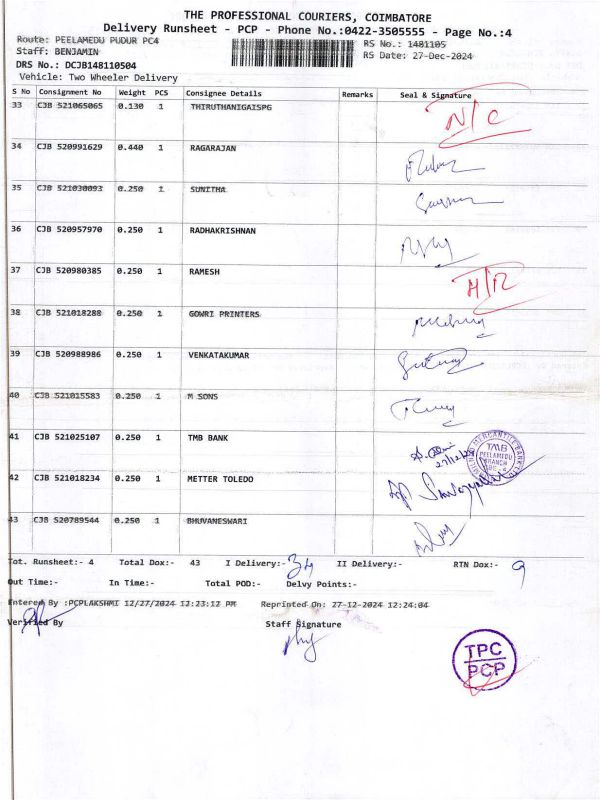 THE PROFESSIONAL COURIERS, COIMBATORE
Delivery Runsheet - PCP - Phone No.:0422-3505555 - Page No.:4
Route: PEELAMEDU PUDUR PC4
RS No.: 1481105
Staff: BENJAMIN
RS Date: 27-Dec-2024
DRS No.: DCJB148110504
Vehicle: Two Wheeler Delivery
S No Consignment No Weight PCS Consignee Details Remarks Seal & Signature
33 CJB 521065065 0.130 1 THIRUTHANIGAISPG N/C
34 CJB 520991629 0.440 1 RAGARAJAN
35 CJB 521030093 0.250 1 SUNITHA
36 CJB 520957970 0.250 1 RADHAKRISHNAN
37 CJB 520980385 0.250 1 RAMESH
38 CJB 521018288 0.250 1 GOWRI PRINTERS
39 CJB 520988986 0.250 1 VENKATAKUMAR
40 CJB 521015583 0.250 1 M SONS
41 CJB 521025107 0.250 1 TMB BANK 27/12/24
TMB
PEELAMEDU
BRANCH
42 CJB 521018234 0.250 1 METTER TOLEDO
43 CJB 520789544 0.250 1 BHUVANESWARI
Tot. Runsheet:- 4 Total Dox:- 43 I Delivery:- 34 II Delivery:- RTN Dox:- 9
Out Time:- In Time:- Total POD:- Delvy Points:-
Entered By :PCPLAKSHMI 12/27/2024 12:23:12 PM Reprinted On: 27-12-2024 12:24:04
Verified By Staff Signature
TPC
PCP